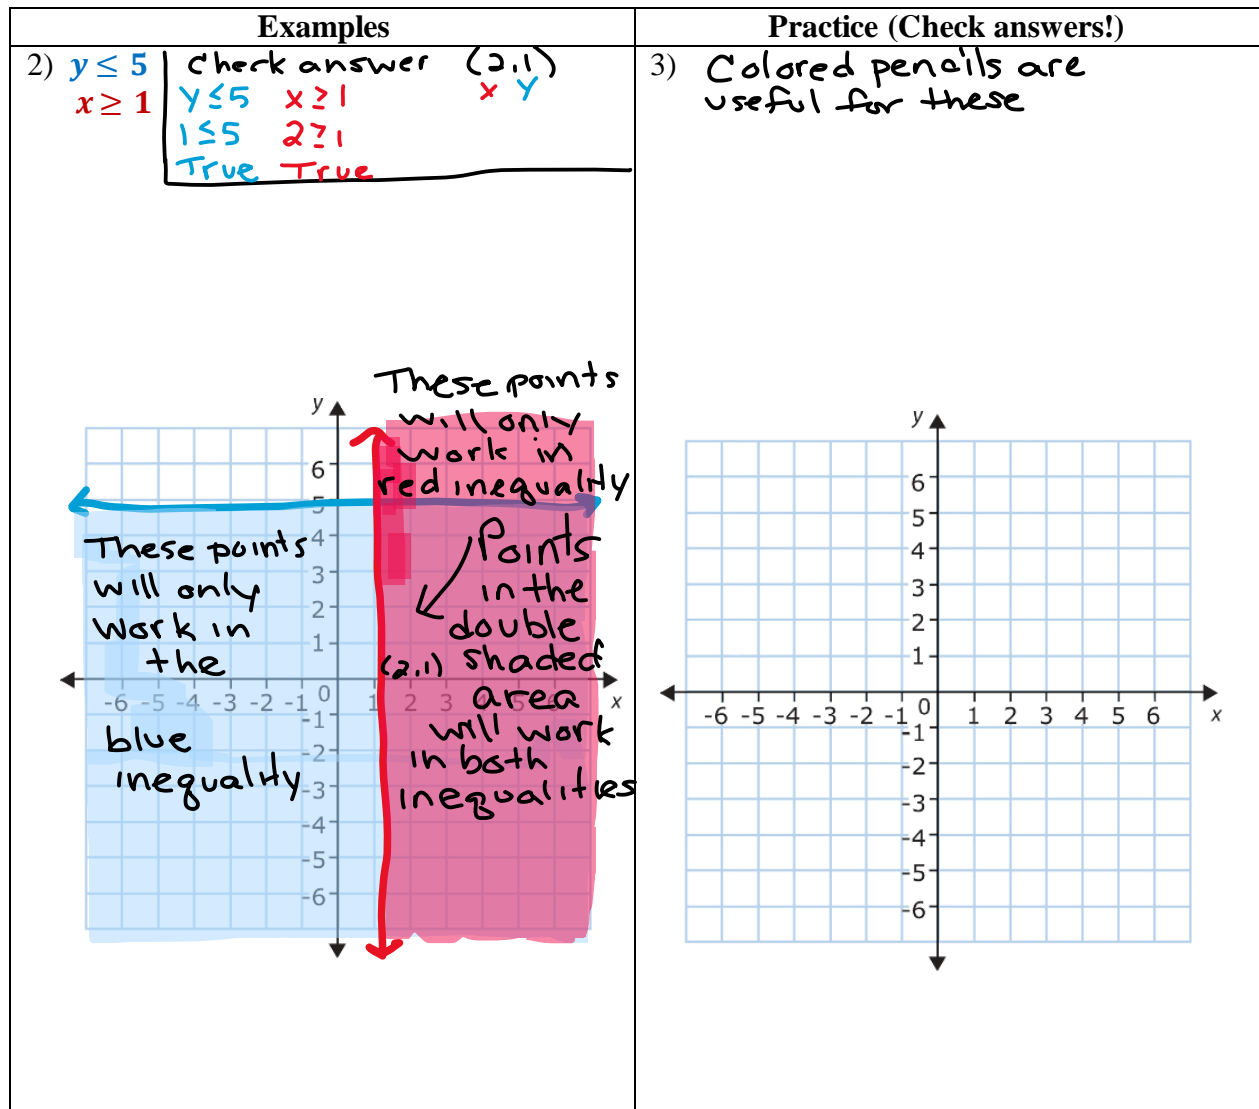 Examples
2) y ≤ 5
x ≥ 1
Check answer (2,1)
x y
y ≤ 5 x ≥ 1
1 ≤ 5 2 ≥ 1
True True
These points
will only
work in
red inequality
These points
will only
work in
the
blue
inequality
Points
in the
double
shaded
area
will work
in both
inequalities
(2,1)
y
6
5
4
3
2
1
0
-6 -5 -4 -3 -2 -1 1 2 3 4 5 6 x
-1
-2
-3
-4
-5
-6
Practice (Check answers!)
3) Colored pencils are
useful for these
y
6
5
4
3
2
1
0
-6 -5 -4 -3 -2 -1 1 2 3 4 5 6 x
-1
-2
-3
-4
-5
-6